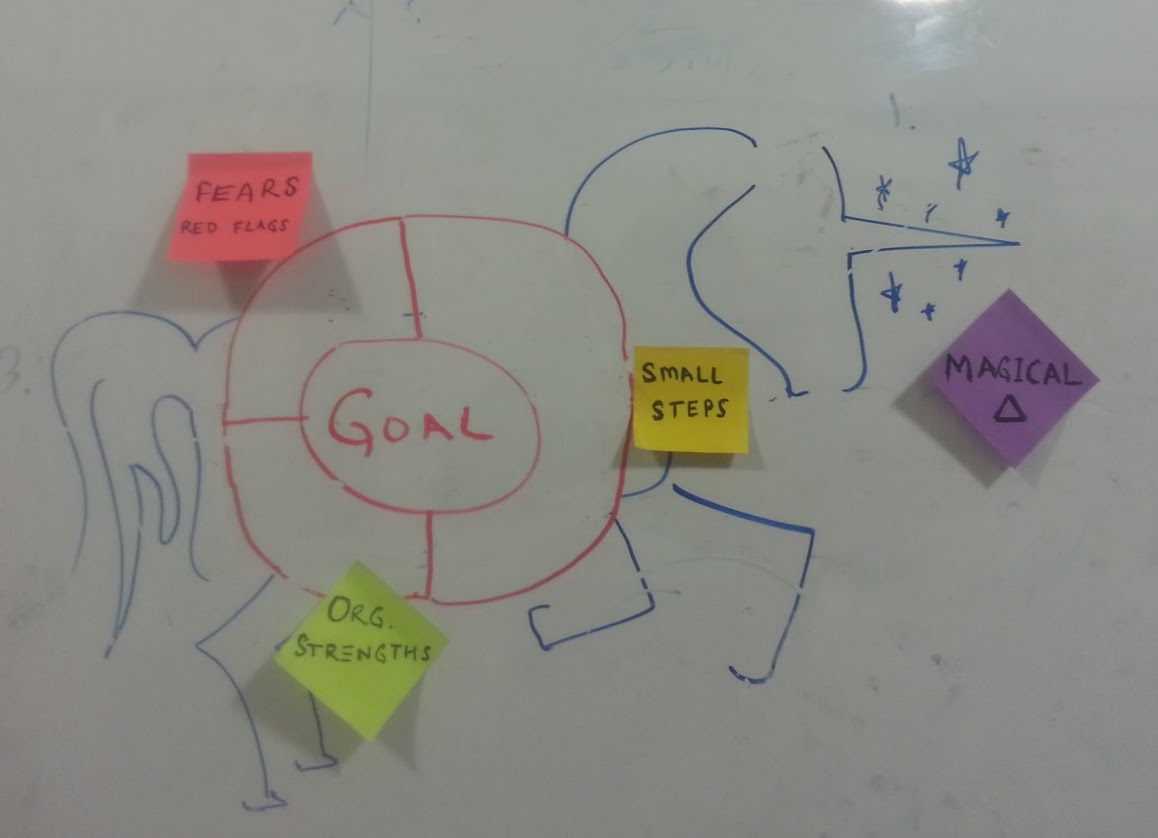 1.
FEARS
RED FLAGS
3.
SMALL
STEPS
MAGICAL
Δ
GOAL
ORG.
STRENGTHS